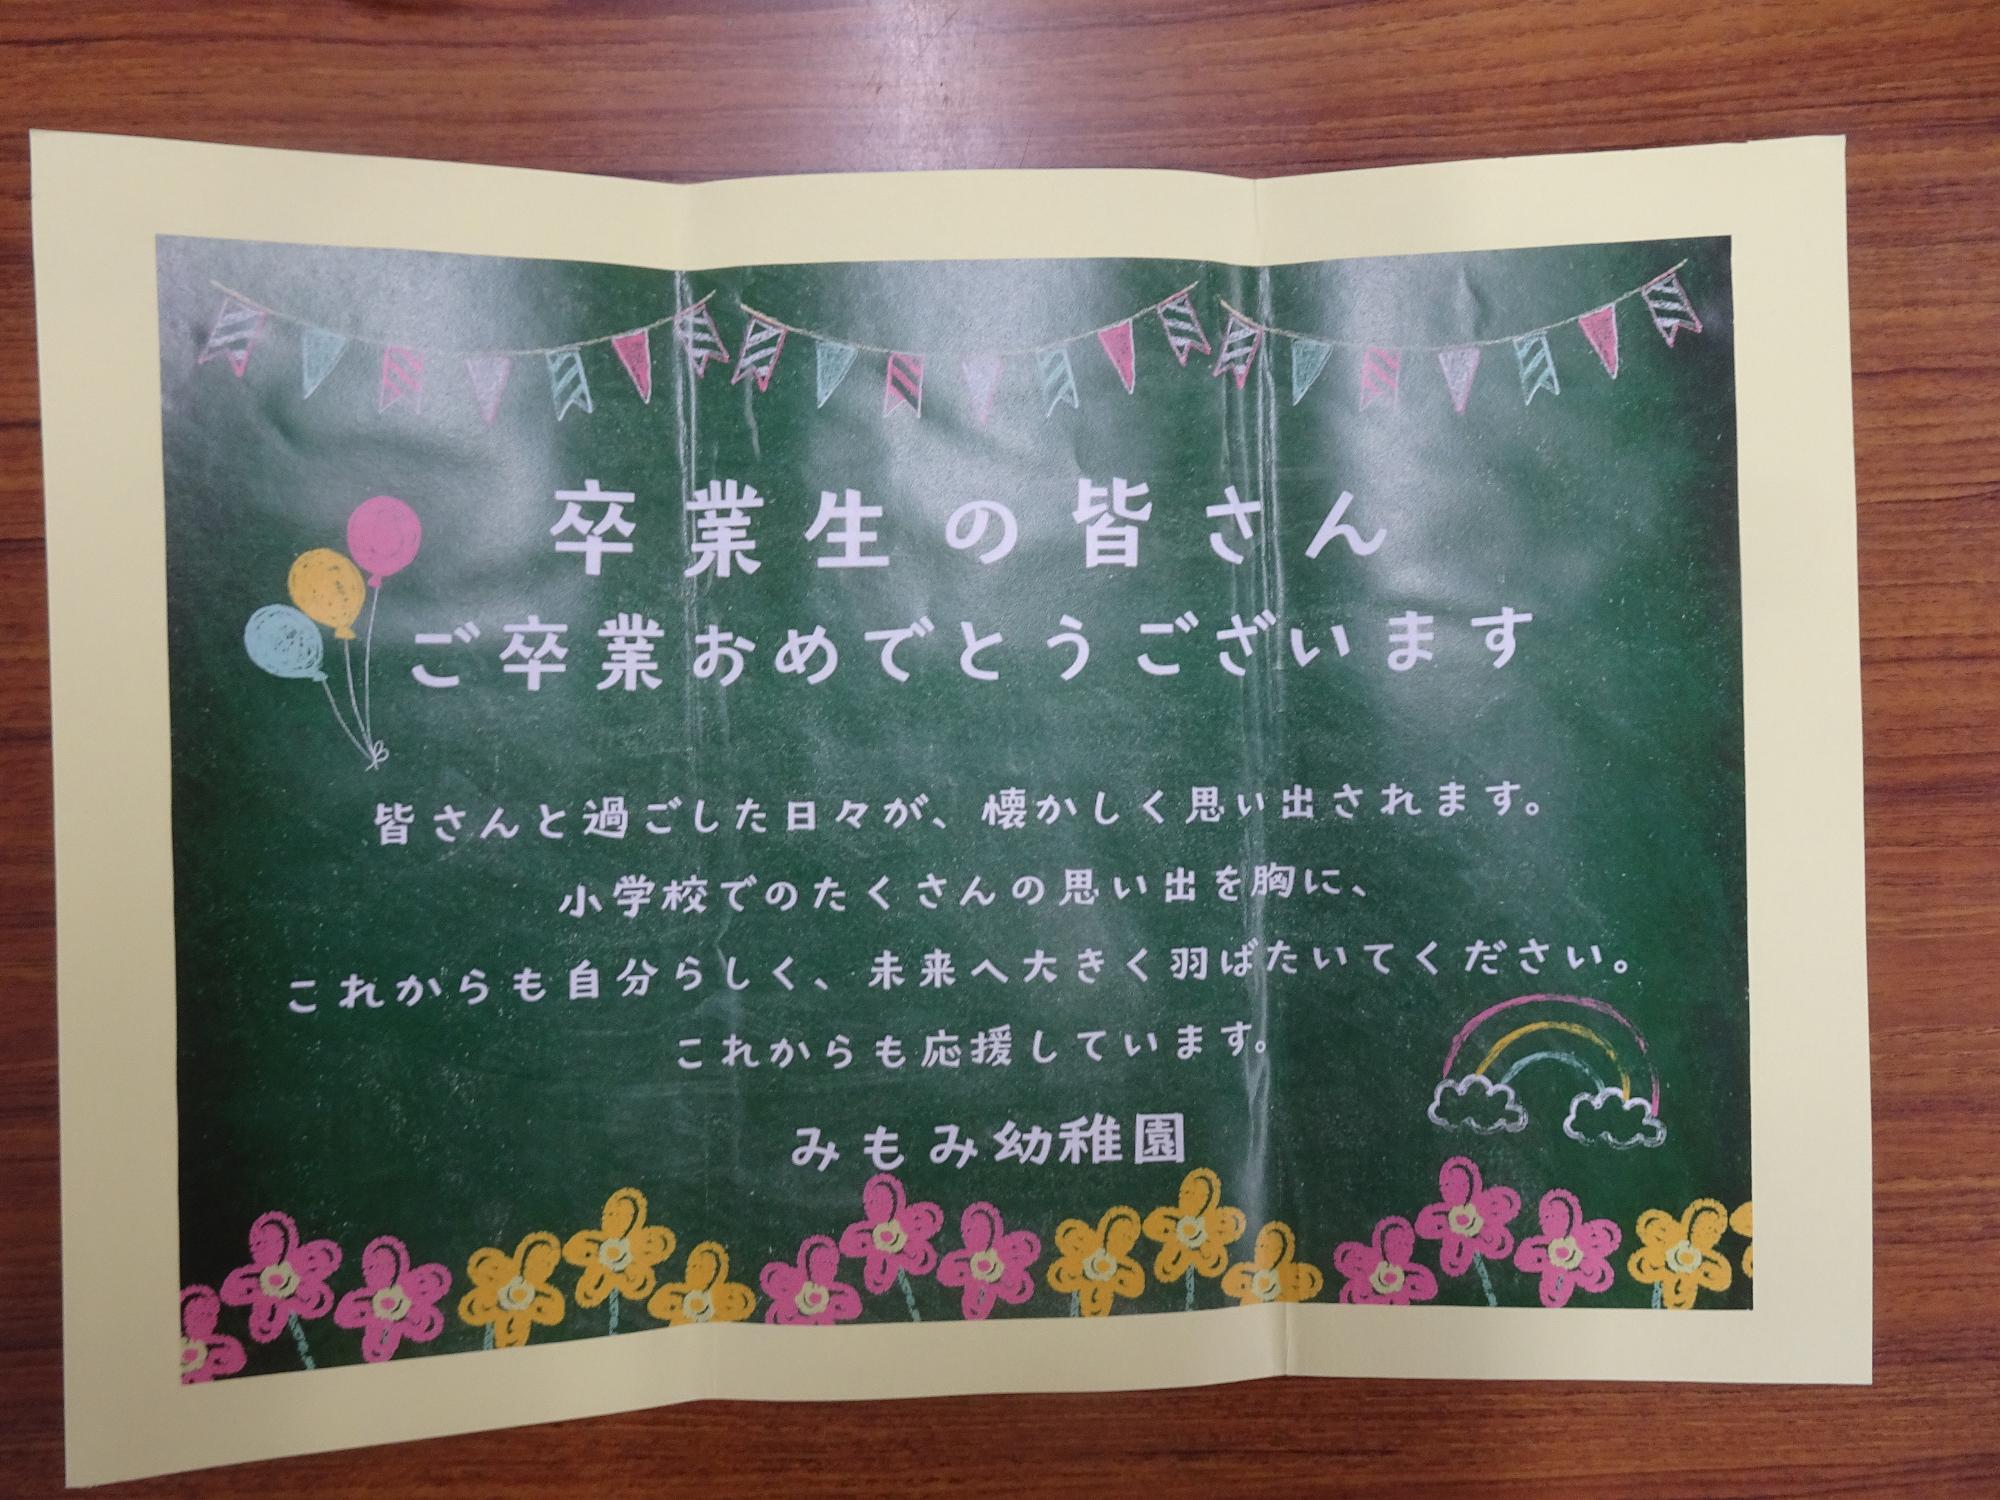 卒業生の皆さん
ご卒業おめでとうございます
皆さんと過ごした日々が、懐かしく思い出されます。
小学校でのたくさんの思い出を胸に、
これからも自分らしく、未来へ大きく羽ばたいてください。
これからも応援しています。
みもみ幼稚園